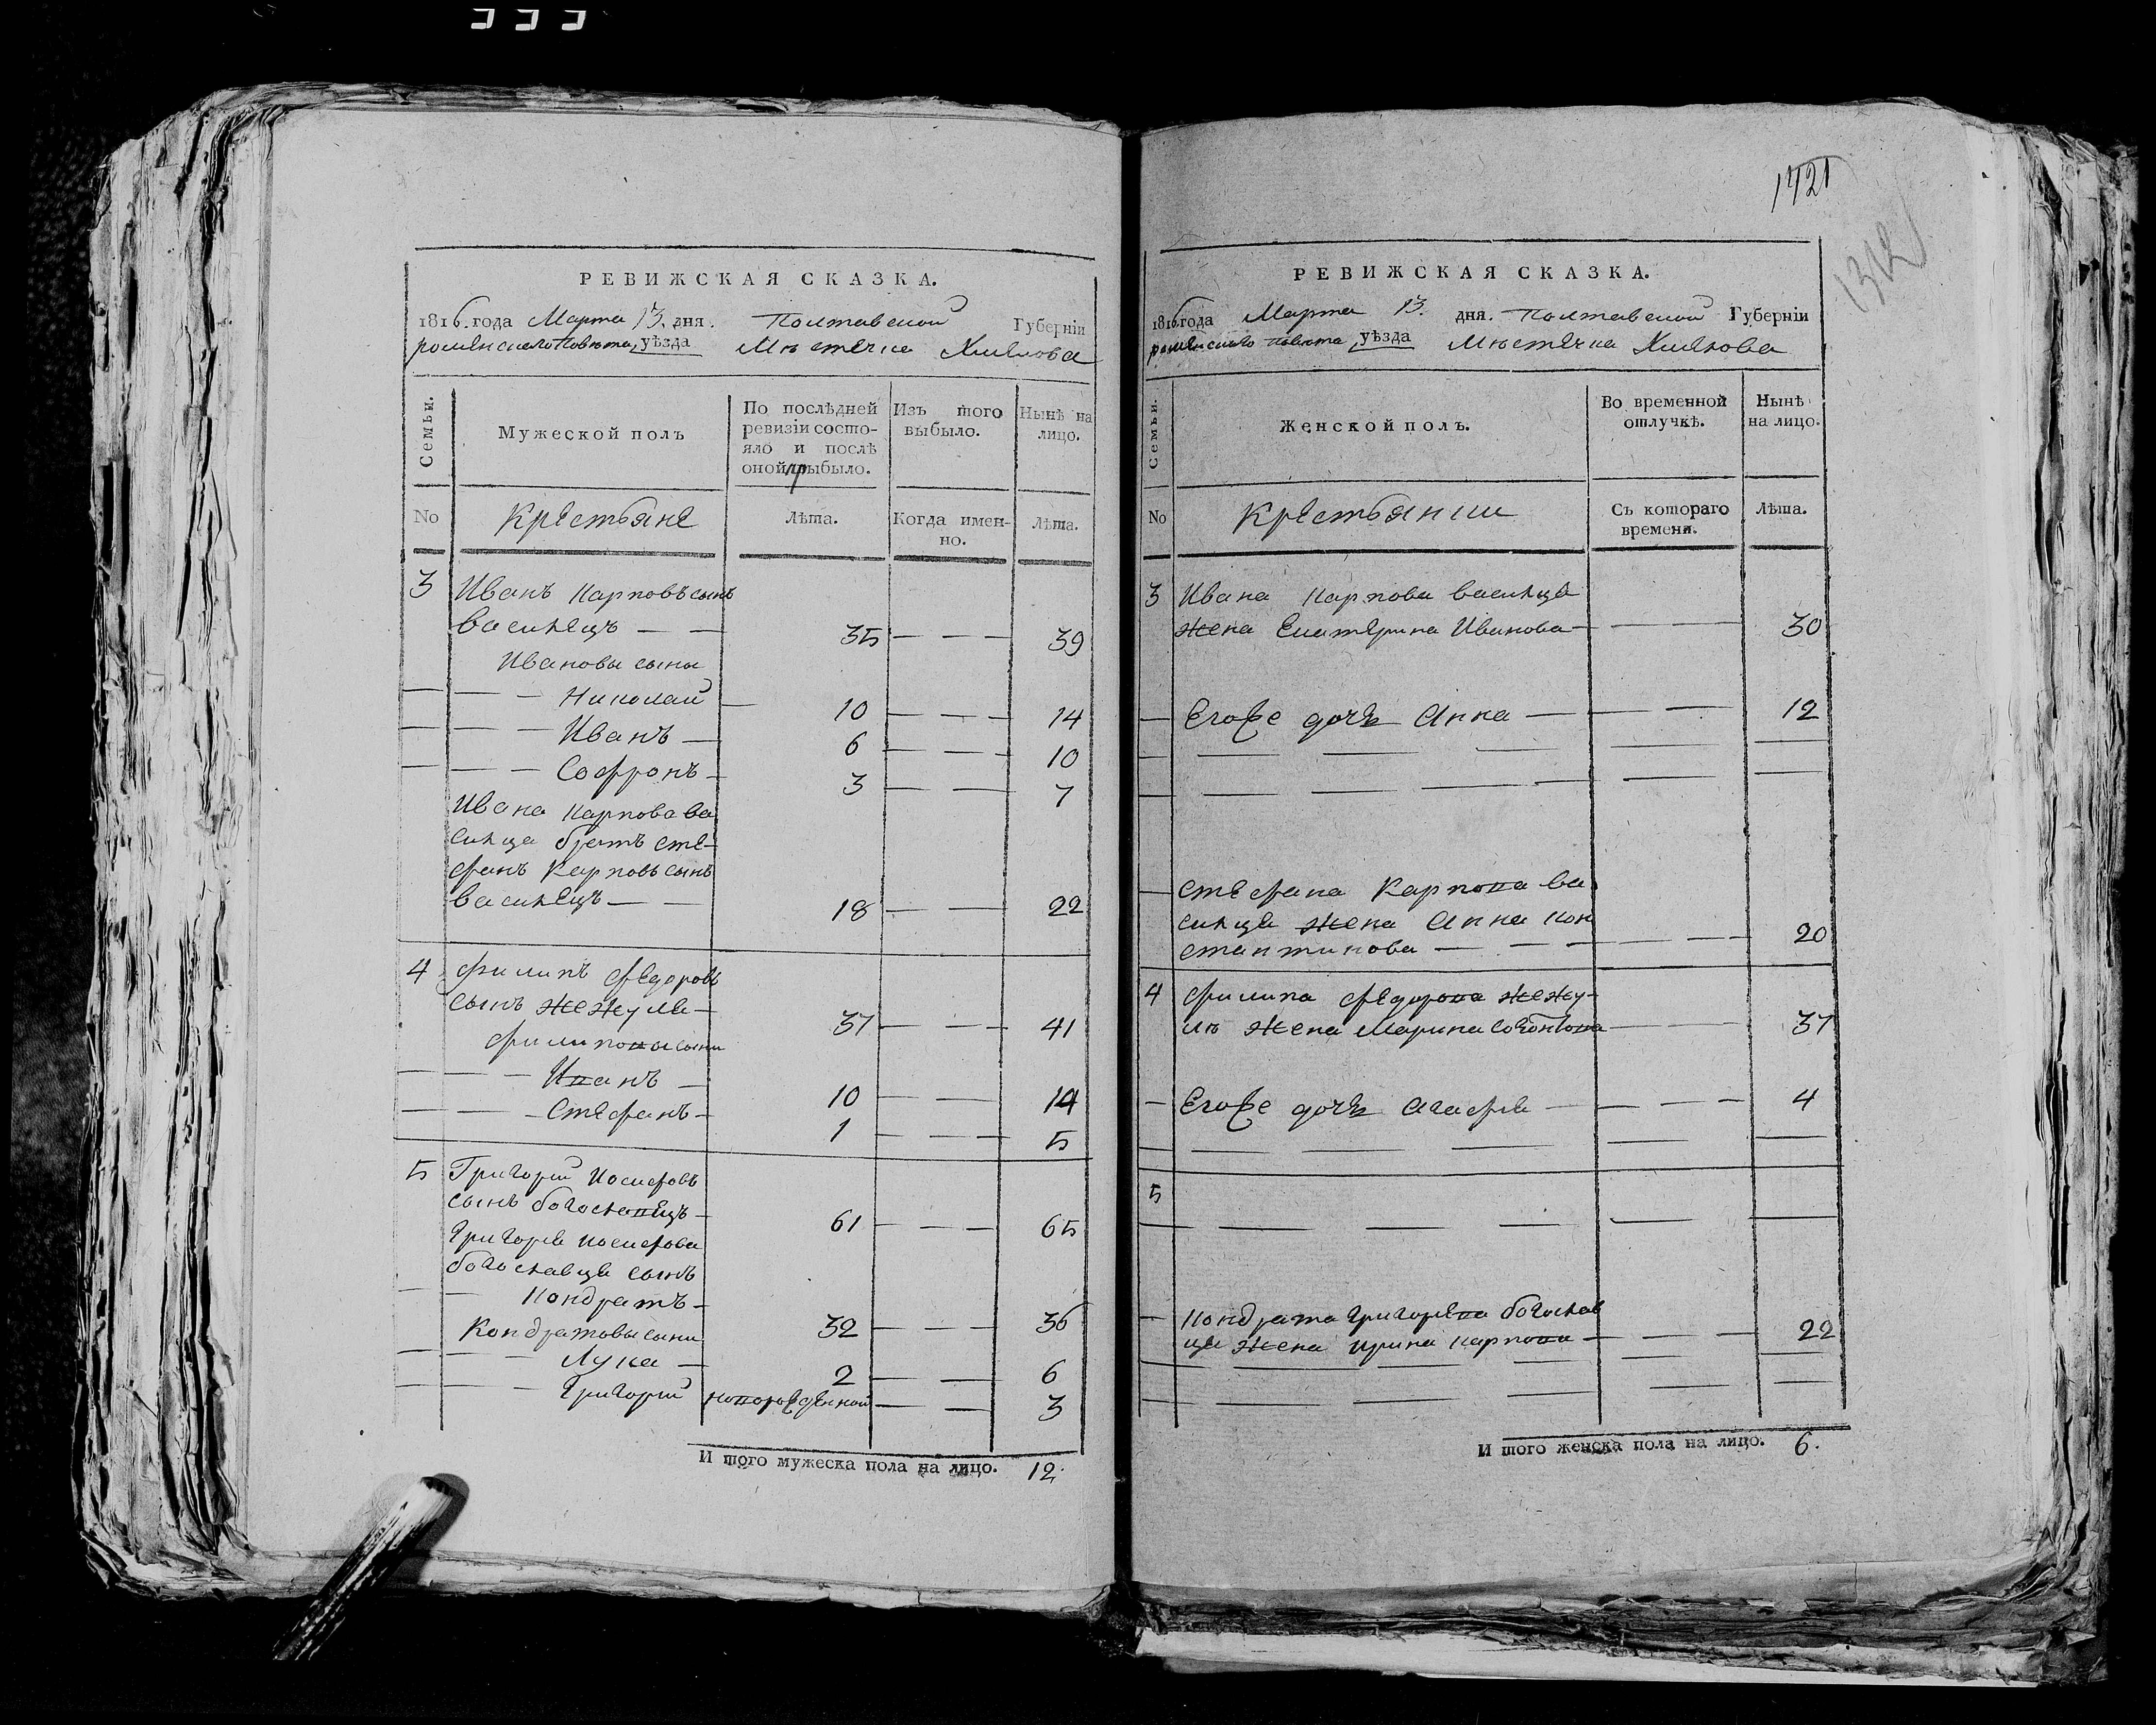 РЕВИЖСКАЯ СКАЗКА.
1816. года Марта 13. дня. Полтавской Губерніи
роменскаго повѣта, уѣзда Мѣстечка Хмѣлова
Семьи.
Мужеской полъ
По послѣдней ревизіи состо-
яло и послѣ
оной прибыло.
Изъ того
выбыло.
Нынѣ на
лицо.
No
Крестьяне
Лѣта.
Когда имен-
но.
Лѣта.
3 Иванъ Карповъ сынъ
василецъ — — 35 — — — 39
Ивановы сыны
— — — Николай — 10 — — — 14
— — — Иванъ — 6 — — — 10
— — — Софронъ — 3 — — — 7
Ивана Карпова ва
силца братъ сте-
фанъ Карповъ сынъ
василецъ — — 18 — — 22
4 филипъ федоровъ
сынъ жежула — 37 — — — 41
филиповы сыны
— — — Иванъ — 10 — — 14
— — — Стефанъ — 1 — — — 5
5 Григорій Иосифовъ
сынъ богославецъ — 61 — — — 65
Григорія иосифова
богославца сынъ
— — Кондратъ — 32 — — — 36
Кондратовы сыны
— — — Лука — 2 — — 6
— — — Григорій новорожденной — — 3
И того мужеска пола на лицо. 12.
1421
1312
РЕВИЖСКАЯ СКАЗКА.
1816 года Марта 13. дня. Полтавской Губерніи
роменскаго повѣта, уѣзда Мѣстечка Хмѣлова
Семьи.
Женской полъ.
Во временной
отлучкѣ.
Нынѣ
на лицо.
No
Крестьянки
Съ котораго
времени.
Лѣта.
3 Ивана Карпова василца
жена Екатерина Иванова — — — 30
— Егоже дочь Анна — — — — 12
— Стефана Карпова ва
силца жена Анна кон
стантинова — — — — — 20
4 филипа федорова жежу-
лѣ жена Марина — — — 37
— Егоже дочь Агафія — — — — 4
5
— Кондрата Григорьева богослав
ца жена ирина карпова — — — — 22
И того женска пола на лицо. 6.